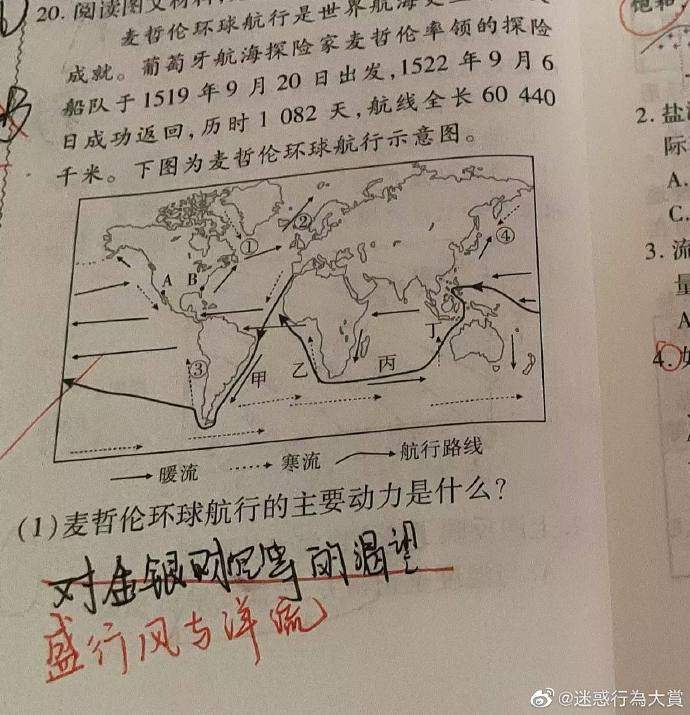 20. 阅读图文材料,
麦哲伦环球航行是世界航海史
成就。葡萄牙航海探险家麦哲伦率领的探险
船队于1519年9月20日出发,1522年9月6
日成功返回,历时1 082天,航线全长60 440
千米。下图为麦哲伦环球航行示意图。
①
②
④
A B
③
甲
乙
丙
丁
暖流 寒流 航行路线
(1)麦哲伦环球航行的主要动力是什么?
对金银财宝等的渴望
盛行风与洋流
2. 盐
际
A.
C.
3. 流
量
A
4. 如
@迷惑行為大賞